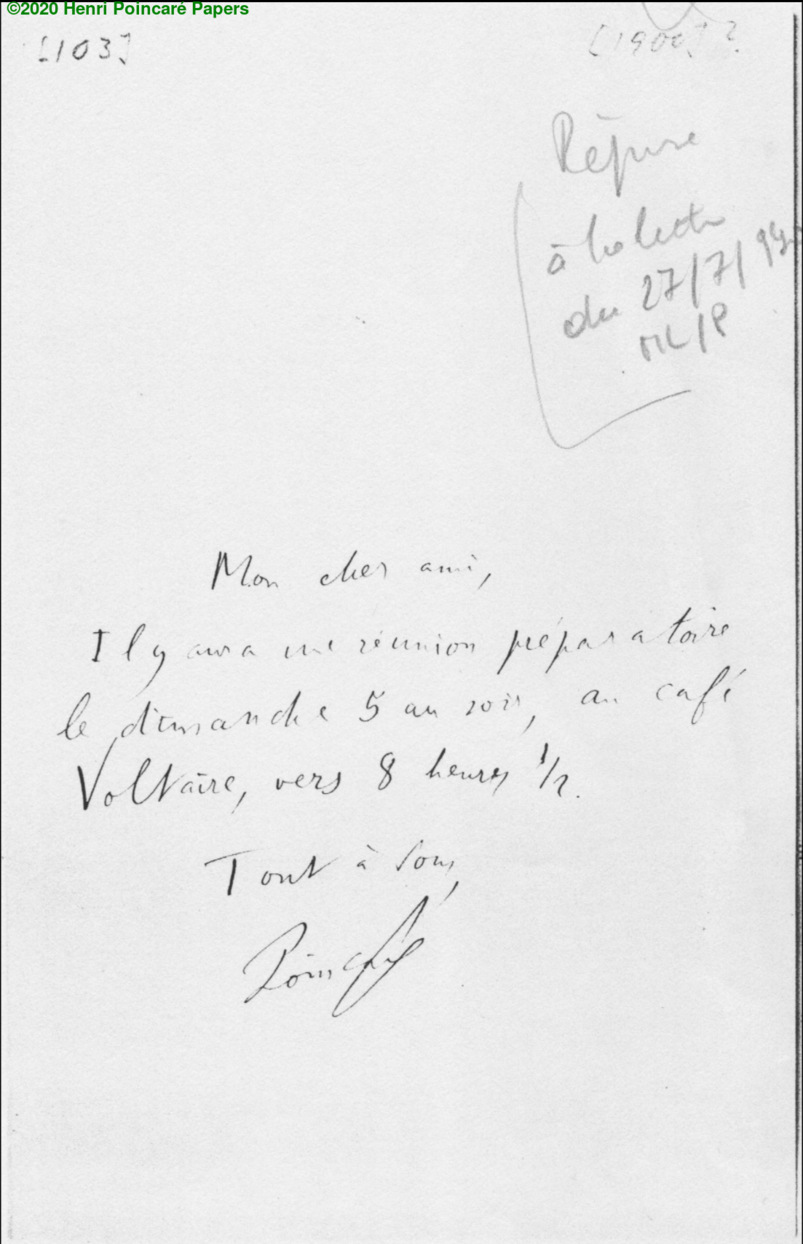 ©2020 Henri Poincaré Papers
[103]
[1900] ?
Réponse
à la lettre
du 27/7/
ML/P
Mon cher ami,
Il y aura une réunion préparatoire
le dimanche 5 au soir, au café
Voltaire, vers 8 heures 1/2.
Tout à vous,
Poincaré